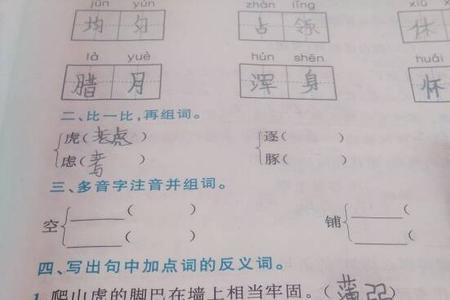 jūn yún zhàn lǐng xiū
均匀 占领 休
là yuè hún shēn huái
腊月 浑身 怀
二、比一比,再组词。
虎(老虎) 逐( )
虑( ) 豚( )
三、多音字注音并组词。
( ) ( )
空 铺
( ) ( )
四、写出句中加点词的反义词。
1. 爬山虎的脚巴在墙上相当牢固。(薄弱)